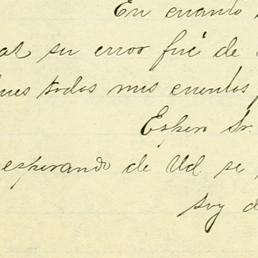 En cuanto
su error fué de
pues todos mis cuentos
Espero Sr.
esperando de Ud se
soy d